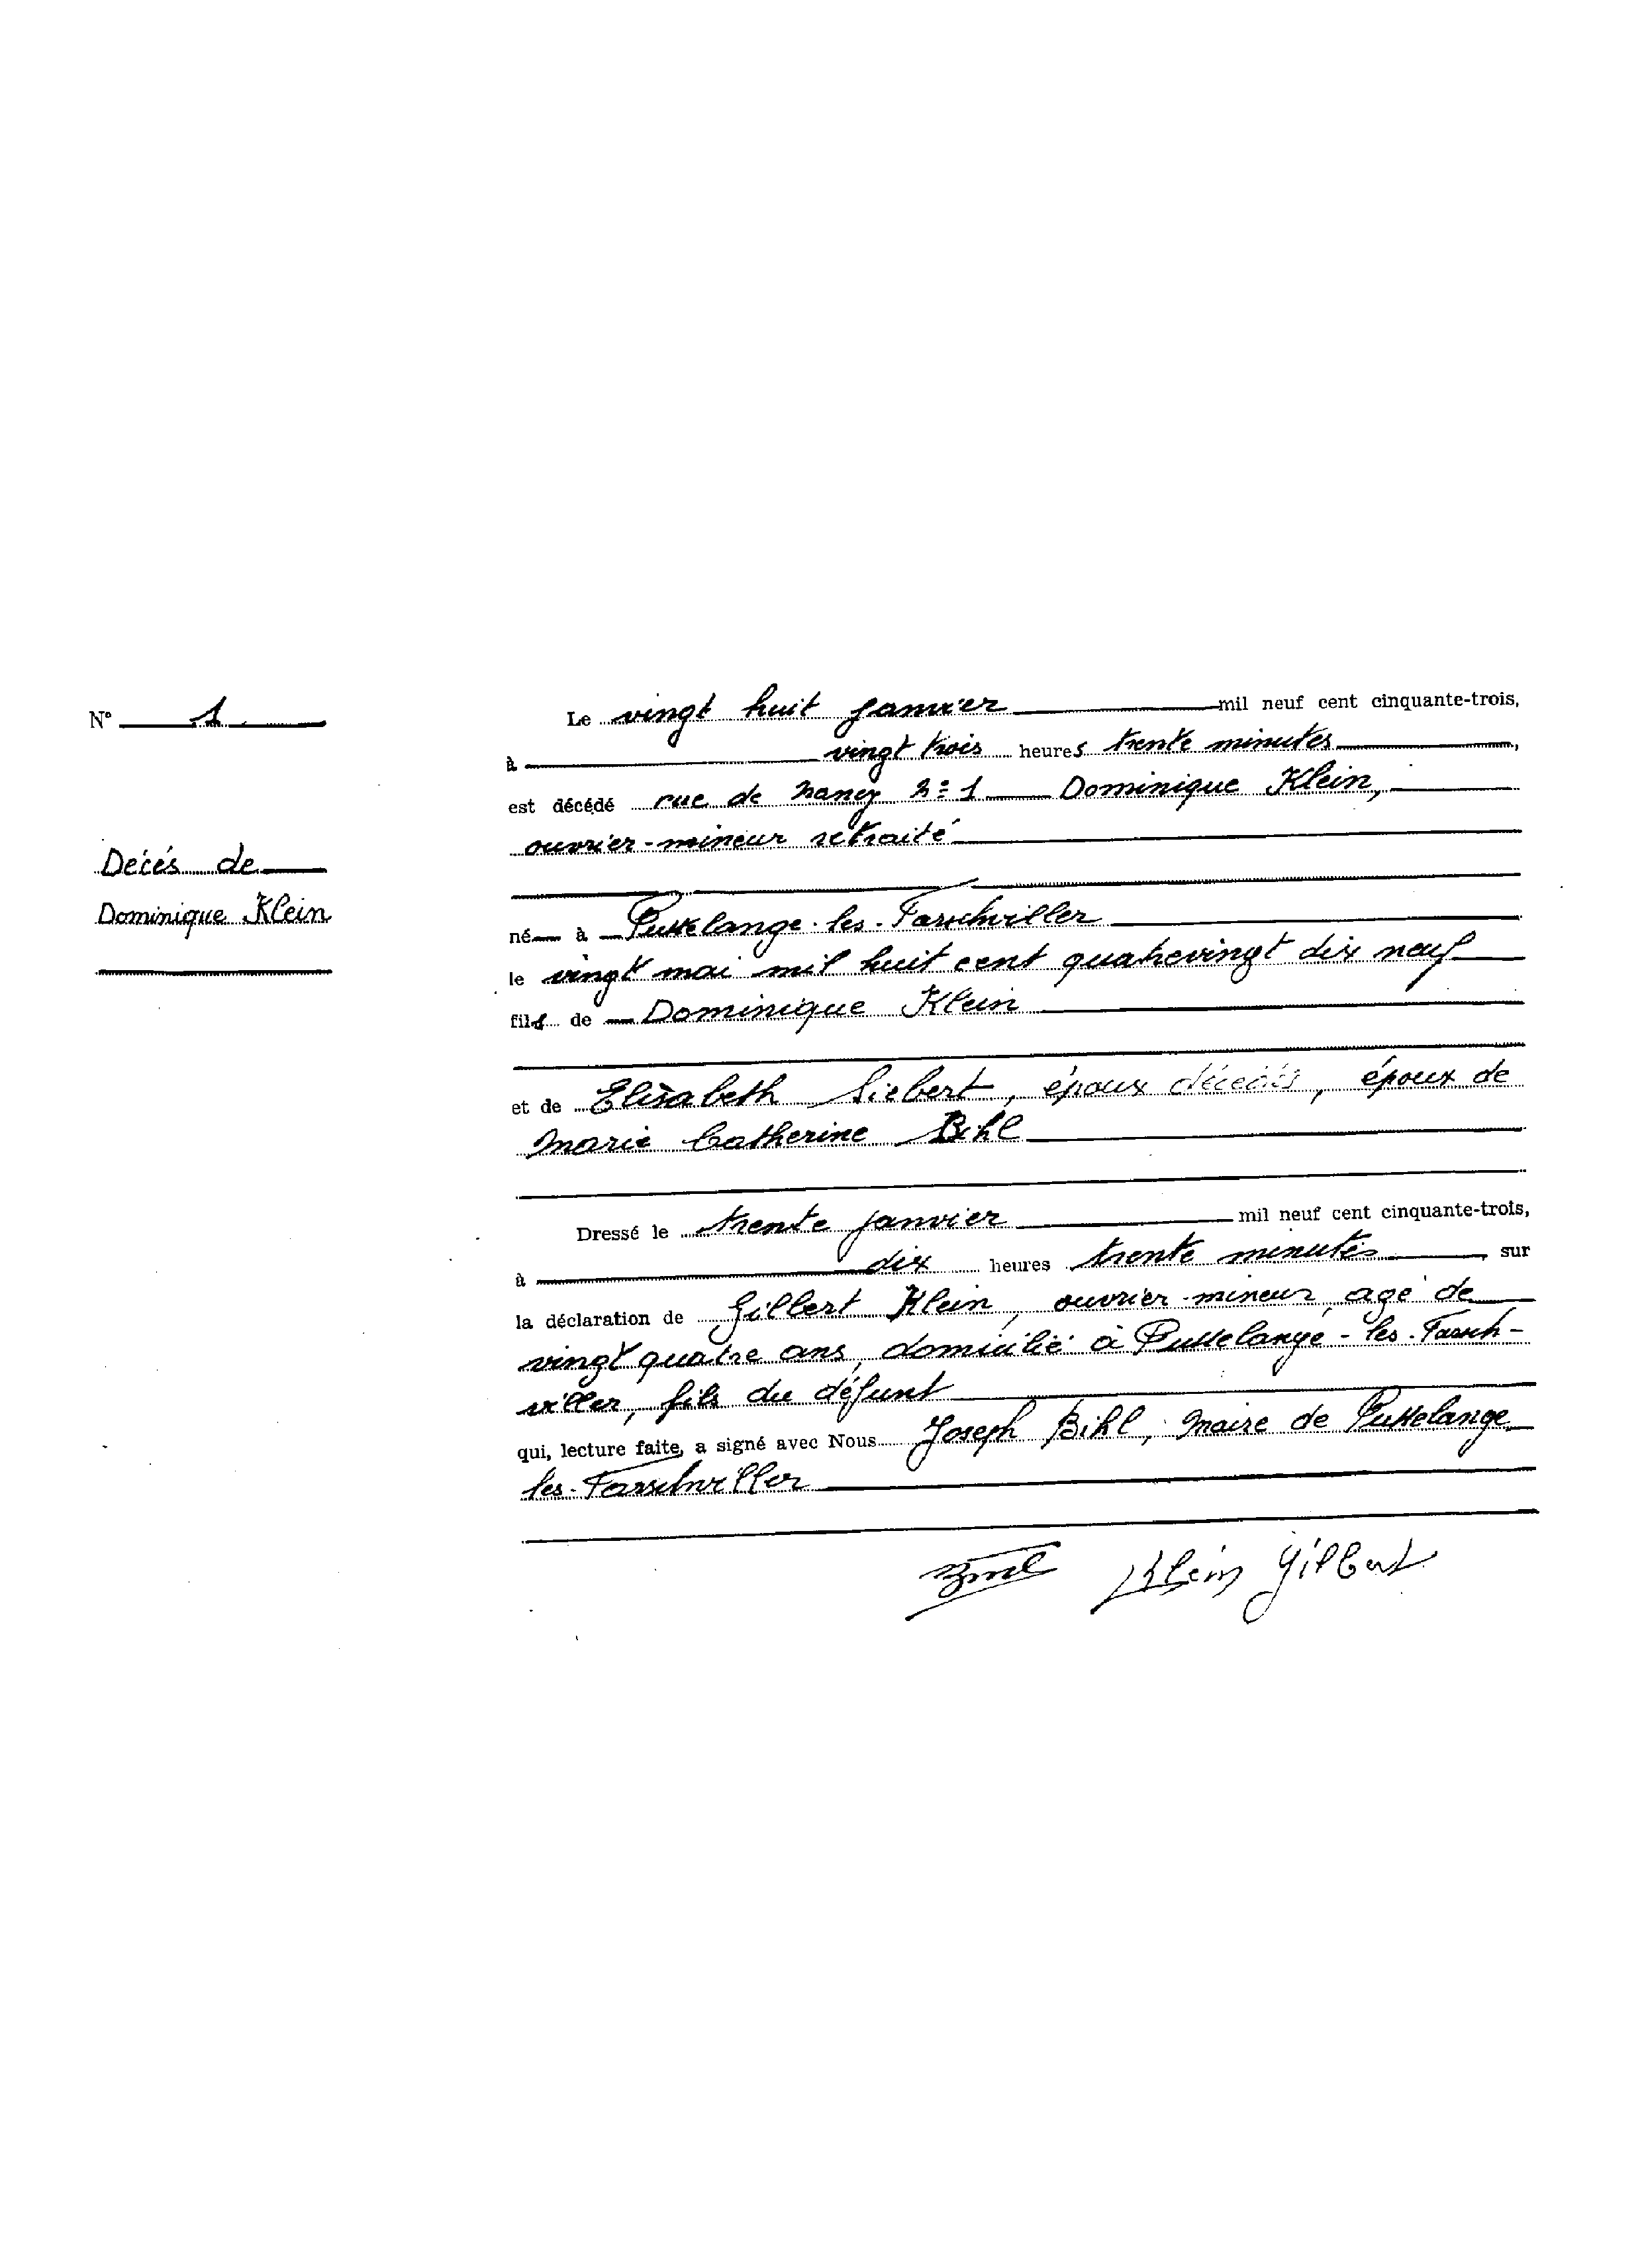 N° 1
Décés de
Dominique Klein
Le vingt huit janvier mil neuf cent cinquante-trois,
à vingt trois heures trente minutes,
est décédé rue de Nancy N° 1 Dominique Klein,
ouvrier-mineur retraité
né à Puttelange-les-Farschviller
le vingt mai mil huit cent quatrevingt dix neuf
fils de Dominique Klein
et de Elisabeth Siebert, époux décédés, époux de
Marie Catherine Bihl
Dressé le trente janvier mil neuf cent cinquante-trois,
à dix heures trente minutes, sur
la déclaration de Gilbert Klein, ouvrier-mineur, agé de
vingt quatre ans, domicilié à Puttelange-les-Farsch-
viller, fils du défunt
qui, lecture faite, a signé avec Nous Joseph Bihl, Maire de Puttelange
les-Farschviller
Bihl Klein Gilbert